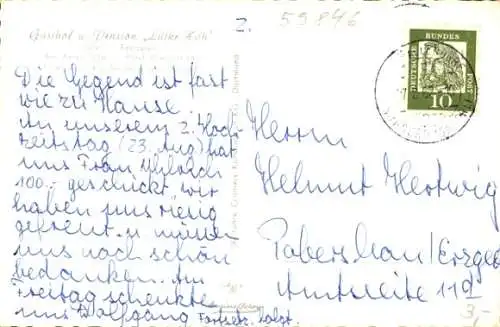 2.
59846
Gasthof u. Pension
Die Gegend ist fast
wie zu Hause.
An unserem 2. Hoch-
zeitstag (23. Aug) hat
uns Frau
100.- geschickt, wir
haben uns riesig
gefreut u. müssen
uns noch schön
bedanken. Am
Freitag schenkte
uns Wolfgang Fortsetz. folgt
DEUTSCHE BUNDES POST
10
Herrn
Helmut Hertwig
Pobershau/Erzgeb
Amtsseite 112
3,-